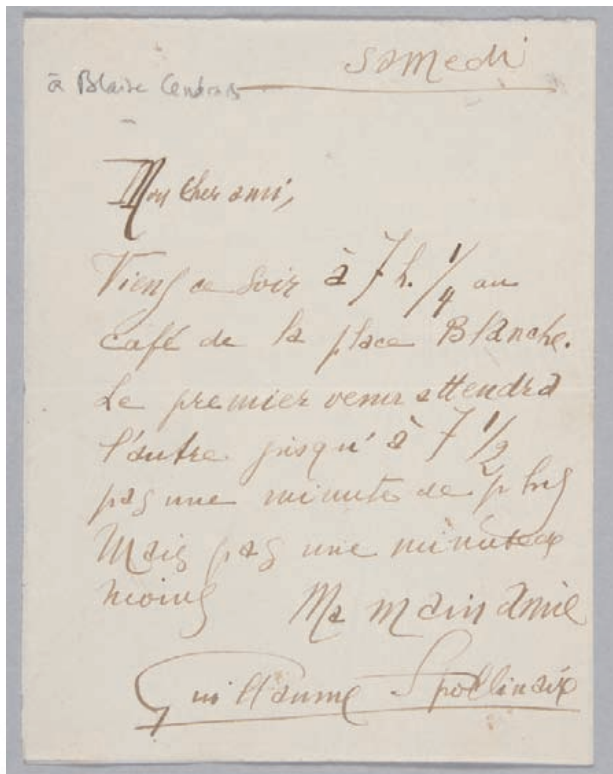 samedi
à Blaise Cendrars
Mon cher ami,
Viens ce soir à 7 h. 1/4 au
café de la place Blanche.
Le premier venu attendra
l'autre jusqu'à 7 1/2
pas une minute de plus
Mais pas une minute de
moins
Ma main amie
Guillaume Apollinaire